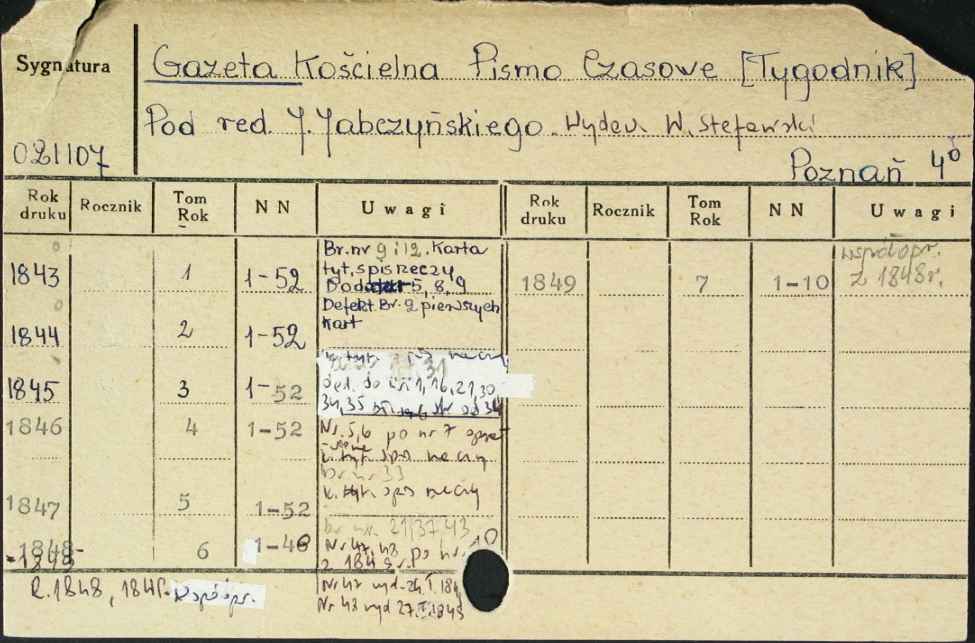 Sygnatura
Gazeta Kościelna Pismo Czasowe [Tygodnik]
Pod red. J. Jabczyńskiego. Wydew W. Stefański
021107
Poznań 4°
Rok druku Rocznik Tom Rok NN Uwagi Rok druku Rocznik Tom Rok NN Uwagi
1843 1 1-52
Br. nr 9 i 12. Karta
tyt, spis rzeczy
5, 8, 9
1849 7 1-10
współopr.
z 1848r.
1844 2 1-52
Defekt Br. 2 pierwszych
kart
1845 3 1-52
def. do
34,35
1846 4 1-52
Nr. 5,6 po nr 7
k. tyt. spis rzeczy
br nr 33
1847 5 1-52
k. tyt. spis rzeczy
br nr. 21,37,43
1848- 6 1-48
-1849
Nr 47, 48 po nr. 10
z 1849 r.
R. 1848, 1849 współopr.
Nr 47 wyd. 24.I.184
Nr 48 wyd 27.I.1849